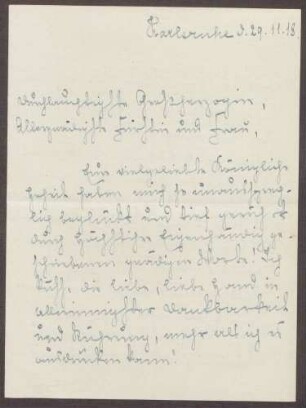 Karlsruhe d. 29.11.18.
Durchlauchtigste Großherzogin,
Allergnädigste Fürstin und Frau,
Eure vielgeliebte Königliche
Hoheit haben mich so unaussprech-
lich beglückt und tief gerührt
durch Höchstihre Eigenhändig ge-
schriebenen gnädigen Worte! Ich
küsse die liebe, liebe Hand in
alleinnigster Dankbarkeit
und Rührung, mehr als ich es
ausdrücken kann!